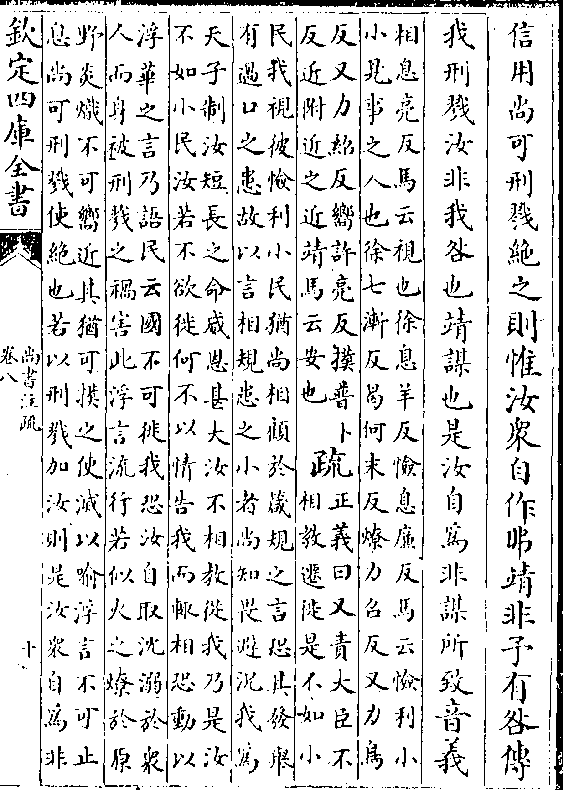 信用尚可刑戮絶之則惟汝衆自作弗靖非予有咎傳
我刑戮汝非我咎也靖謀也是汝自為非謀所致音義
相息亮反馬云視也徐息羊反憸息廉反馬云憸利小
小見事之人也徐七漸反曷何末反燎力召反又力鳥
反又力紹反嚮許亮反撲普卜
反近附近之近靖馬云安也
疏
正義曰又責大臣不
相教遷徙是不如小
民我視彼憸利小民猶尚相顧於箴規之言恐其發舉
有過口之患故以言相規患之小者尚知畏避況我為
天子制汝短長之命威恩甚大汝不相教從我乃是汝
不如小民汝若不欲徙何不以情告我而輒相恐動以
浮華之言乃語民云國不可徙我恐汝自取沈溺於衆
人而身被刑戮之禍害此浮言流行若似火之燎於原
野炎熾不可嚮近其猶可撲之使滅以喻浮言不可止
息尚可刑戮使絶也若以刑戮加汝則是汝衆自為非
欽定四庫全書
尚書注疏
卷八
十